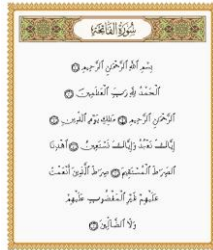 سُورَةُ الْفَاتِحَةِ
بِسْمِ اللَّهِ الرَّحْمَٰنِ الرَّحِيمِ ۝
الْحَمْدُ لِلَّهِ رَبِّ الْعَالَمِينَ ۝
الرَّحْمَٰنِ الرَّحِيمِ ۝ مَالِكِ يَوْمِ الدِّينِ ۝
إِيَّاكَ نَعْبُدُ وَإِيَّاكَ نَسْتَعِينُ ۝ اهْدِنَا
الصِّرَاطَ الْمُسْتَقِيمَ ۝ صِرَاطَ الَّذِينَ أَنْعَمْتَ
عَلَيْهِمْ غَيْرِ الْمَغْضُوبِ عَلَيْهِمْ
وَلَا الضَّالِّينَ ۝